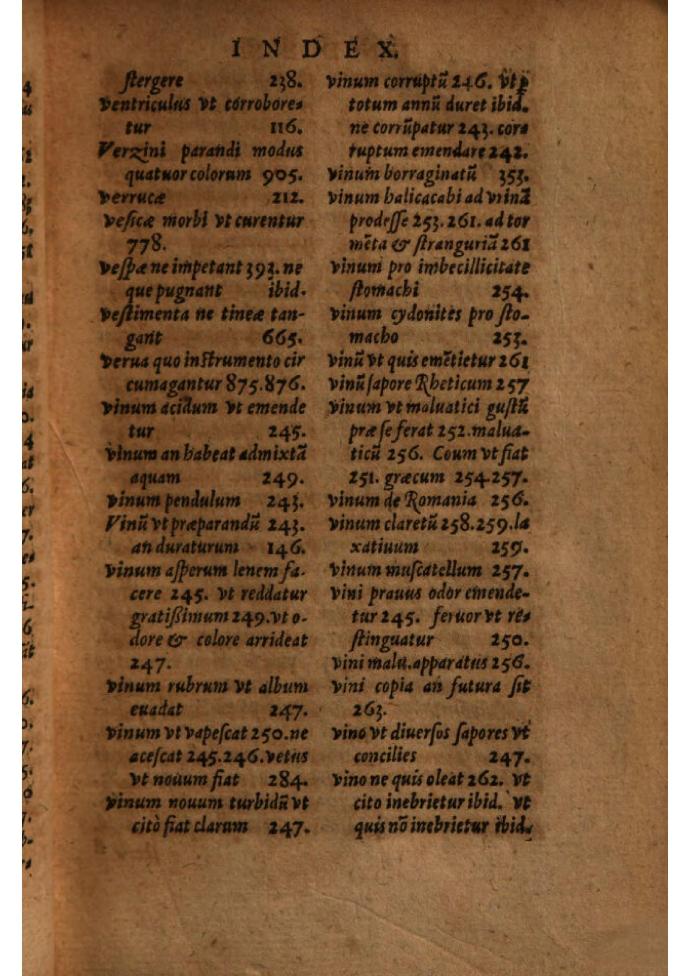 INDEX.
stergere 238.
ventriculus vt corrobore-
tur 116.
Verzini parandi modus
quatuor colorum 905.
verrucæ 212.
vesicæ morbi vt curentur
778.
vespæ ne impetant 393. ne
que pugnant ibid.
vestimenta ne tineæ tan-
gant 665.
verua quo instrumento cir
cumagantur 875.876.
vinum acidum vt emende
tur 245.
vinum an habeat admixtã
aquam 249.
vinum pendulum 243.
Vinũ vt præparandũ 243.
an duraturum 146.
vinum asperum lenem fa-
cere 245. vt reddatur
gratißimum 249. vt o-
dore & colore arrideat
247.
vinum rubrum vt album
euadat 247.
vinum vt vapescat 250. ne
acescat 245.246. vetus
vt nouum fiat 284.
vinum nouum turbidũ vt
citò fiat clarum 247.
vinum corruptũ 246. vt ꝑ
totum annũ duret ibid.
ne corrũpatur 243. cor-
ruptum emendare 242.
vinum borraginatũ 353.
vinum halicacabi ad vrinã
prodesse 253.261. ad tor
mẽta & stranguriã 261
vinum pro imbecillicitate
stomachi 254.
vinum cydonites pro sto-
macho 253.
vinũ vt quis emẽtietur 261
vinũ sapore Rheticum 257
vinum vt maluatici gustũ
præ se ferat 252. malua-
ticũ 256. Coum vt fiat
251. græcum 254.257.
vinum de Romania 256.
vinum claretũ 258.259. la
xatiuum 259.
vinum muscatellum 257.
vini prauus odor emende-
tur 245. feruor vt re-
stinguatur 250.
vini malu. apparatus 256.
vini copia an futura sit
263.
vino vt diuersos sapores vt
concilies 247.
vino ne quis oleat 262. vt
cito inebrietur ibid. vt
quis nõ inebrietur ibid.